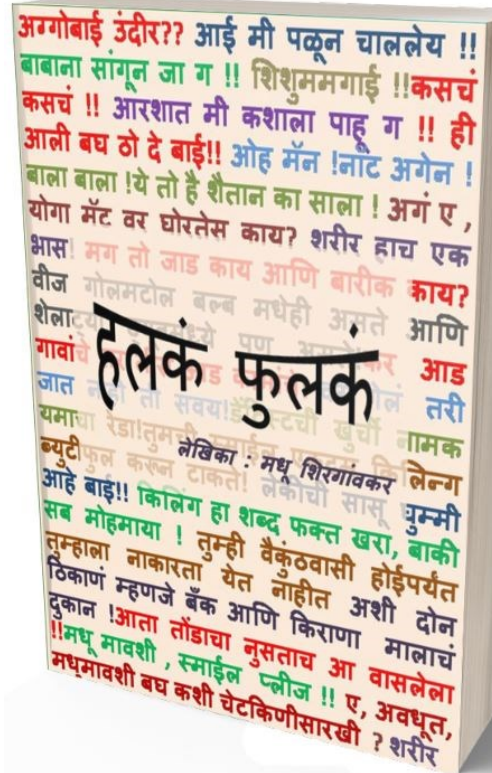 अग्गोबाई उंदीर?? आई मी पळून चाललेय !!
बाबाना सांगून जा ग !! शिशुममगाई !!कसचं
कसचं !! आरशात मी कशाला पाहू ग !! ही
आली बघ ठो दे बाई!! ओह मॅन !नॉट अगेन !
बाला बाला !ये तो है शैतान का साला ! अगं ए ,
योगा मॅट वर घोरतेस काय? शरीर हाच एक
भास! मग तो जाड काय आणि बारीक काय?
वीज गोलमटोल बल्ब मधेही असते आणि
शेला पण आड
गावां तरी
हलकं फुलकं
जात नाही ती सवय!
यमाचा रेडा!तुमची स्माईल नामक
लेखिका : मधू शिरगांवकर
ब्युटीफुल करून टाकते! लेकीची सासू किलिन्ग
आहे बाई!! किलिंग हा शब्द फक्त खरा, बाकी घुम्मी
सब मोहमाया ! तुम्ही वैकुंठवासी होईपर्यंत
तुम्हाला नाकारता येत नाहीत अशी दोन
ठिकाणं म्हणजे बँक आणि किराणा मालाचं
दुकान !आता तोंडाचा नुसताच आ वासलेला
!!मधू मावशी , स्माईल प्लीज !! ए, अवधूत,
मधूमावशी बघ कशी चेटकिणीसारखी ? शरीर